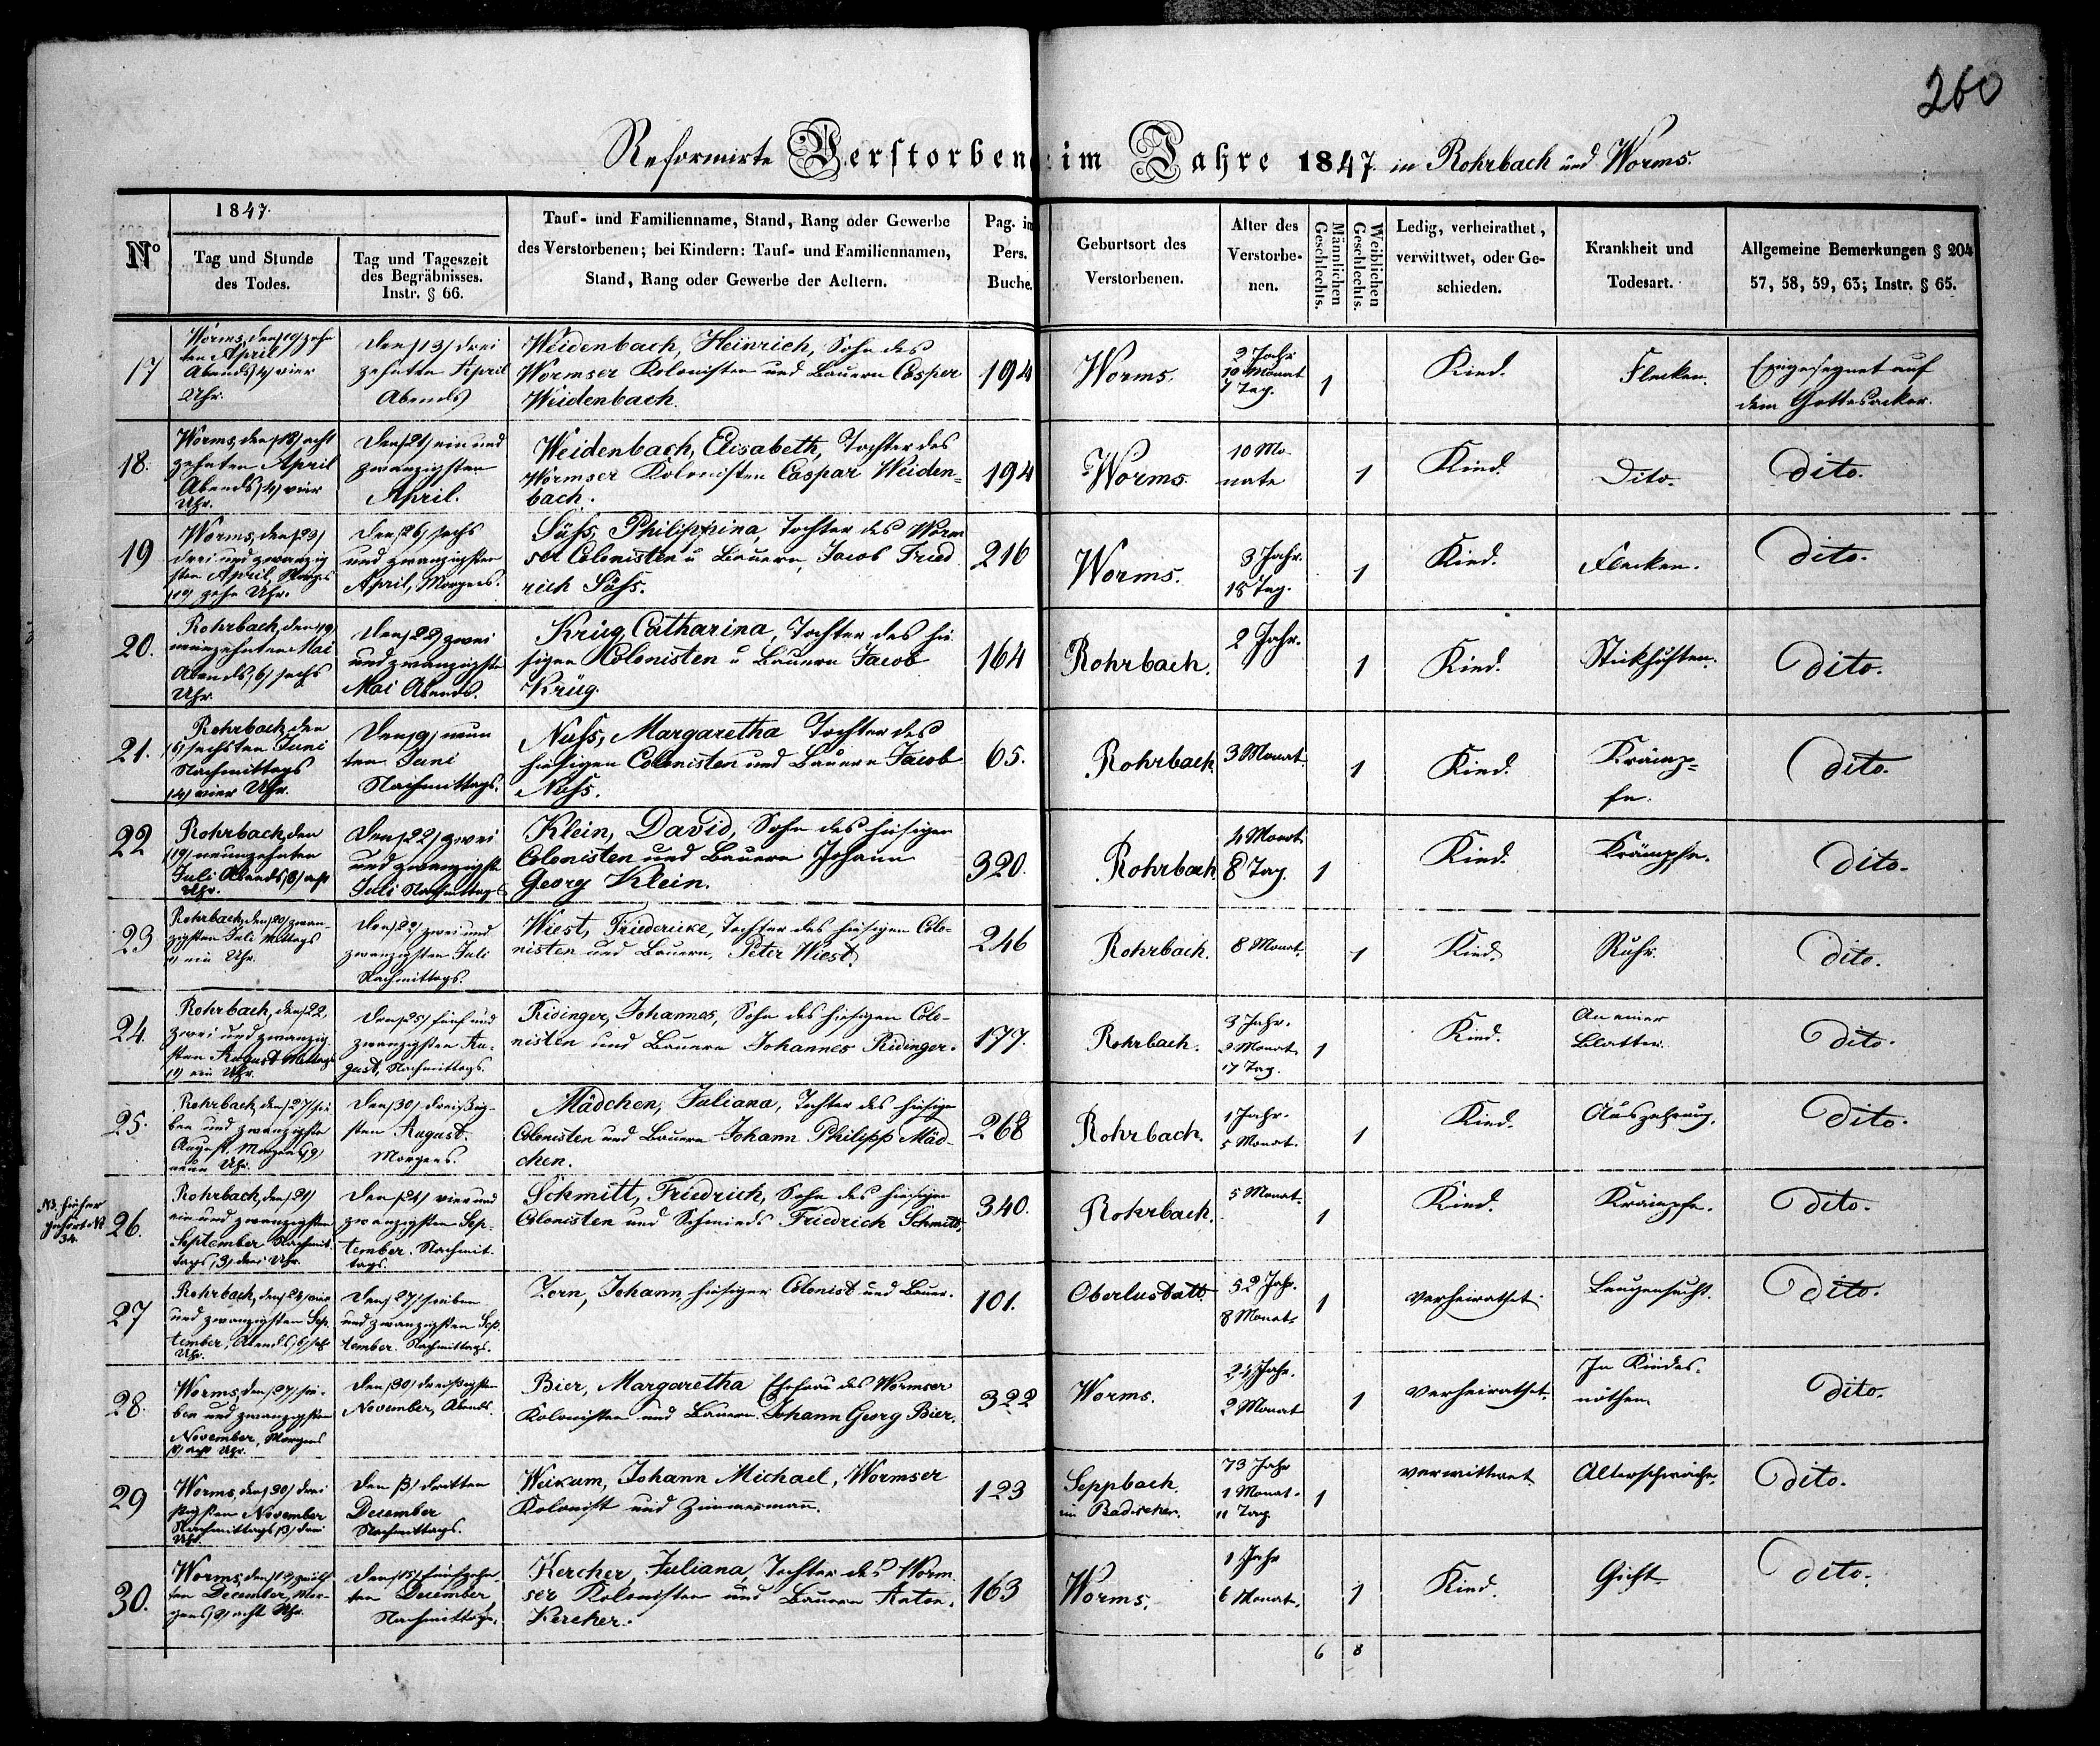 260
Reformirte Verstorbene im Jahre 1847. in Rohrbach und Worms.
No
1847.
Tag und Stunde
des Todes.
Tag und Tageszeit
des Begräbnisses.
Instr. § 66.
Tauf- und Familienname, Stand, Rang oder Gewerbe
des Verstorbenen; bei Kindern: Tauf- und Familiennamen,
Stand, Rang oder Gewerbe der Aeltern.
Pag. im
Pers.
Buche.
Geburtsort des
Verstorbenen.
Alter des
Verstorbe-
nen.
Männlichen
Geschlechts.
Weiblichen
Geschlechts.
Ledig, verheirathet,
verwittwet, oder Ge-
schieden.
Krankheit und
Todesart.
Allgemeine Bemerkungen § 204
57, 58, 59, 63; Instr. § 65.
17
Worms, den /10/ zehn
ten April
Abends /4/ vier
Uhr.
Den /13/ drei
zehnten April
Abends
Weidenbach, Heinrich, Sohn des
Wormser Kolonisten und Bauern Casper
Weidenbach.
194
Worms.
2 Jahr
10 Monat
7 Tag.
1
Kind.
Flecken.
Eingesegnet auf
dem Gottesacker.
18.
Worms, den /18/ acht
zehnten April
Abends /4/ vier
Uhr.
Den /21/ ein und
zwanzigsten
April.
Weidenbach, Elisabeth, Tochter des
Wormser Kolonisten Caspar Weiden=
bach.
194
Worms.
10 Mo
nate
1
Kind.
Dito.
Dito.
19
Worms, den /23/
drei und zwanzig
sten April, Morgens
/10/ zehn Uhr.
Den /26/ sechs
und zwanzigsten
April, Morgens.
Süfs, Philippina, Tochter des Worm
ser Colonisten u Bauern, Jacob Fried
rich Süfs.
216
Worms.
3 Jahr.
15 Tag.
1
Kind.
Flecken.
Dito.
20.
Rohrbach, den /19/
neunzehnten Mai
Abends /6/ sechs
Uhr.
Den /22/ zwei
und zwanzigsten
Mai Abends.
Krüg, Catharina, Tochter des hie
sigen Colonisten u Bauern Jacob
Krüg.
164
Rohrbach.
2 Jahr.
1
Kind.
Stickhusten.
Dito.
21.
Rohrbach, den
/6/ sechsten Juni
Nachmittags
/4/ vier Uhr.
Den /9/ neun
ten Juni
Nachmittags.
Nufs, Margaretha Tochter des
hiesigen Colonisten und Bauern Jacob
Nufs.
65.
Rohrbach.
3 Monat.
1
Kind.
Krämp=
fe.
Dito.
22
Rohrbach, den
/19/ neunzehnten
Juli Abends /8/ acht
Uhr.
Den /22/ zwei
und zwanzigsten
Juli Nachmittags
Klein, David, Sohn des hiesigen
Colonisten und Bauern Johann
Georg Klein.
320.
Rohrbach.
4 Monat.
8 Tag.
1
Kind.
Krämpfe.
Dito.
23
Rohrbach, den /20/ zwan-
zigsten Juli Mittags
/1/ ein Uhr.
Den /22/ zwei und
zwanzigsten Juli
Nachmittags.
Wiest, Friedericke, Tochter des hiesigen Colo-
nisten und Bauern, Peter Wiest.
246
Rohrbach.
8 Monat.
1
Kind.
Ruhr.
Dito.
24.
Rohrbach, den /22/
zwei und zwanzig
sten August Mittags
/1/ ein Uhr.
Den /25/ fünf und
zwanzigsten Au-
gust, Nachmittags.
Ridinger, Johannes, Sohn des hiesigen Colo-
nisten und Bauern Johannes Ridinger.
177.
Rohrbach.
3 Jahr.
2 Monat
17 Tag.
1
Kind.
An einer
Blatter.
Dito.
25.
Rohrbach, den /27/ sie
ben und zwanzigsten
August, Morgens /9/
neun Uhr.
Den /30/ dreißig-
sten August.
Morgens.
Mädchen, Juliana, Tochter des hiesigen
Colonisten und Bauern Johann Philipp Mäd-
chen.
268
Rohrbach.
1 Jahr.
5 Monat.
1
Kind.
Auszehrung.
Dito.
NB. hieher
gehört N
34.
26.
Rohrbach, den /21/
ein und zwanzigsten
September Nachmit
tags /3/ drei Uhr.
Den /24/ vier und
zwanzigsten Sep-
tember. Nachmit.
tags.
Schmitt, Friedrich, Sohn des hiesigen
Colonisten und Schmieds Friedrich Schmitt,
340.
Rohrbach.
5 Monat.
1
Kind.
Krämpfe.
Dito.
27
Rohrbach, den /24/ vier
und zwanzigsten Sep.
tember, Abends /6/ sechs
Uhr.
Den /27/ sieben
und zwanzigsten Sep.
tember. Nachmittags.
Zorn, Johann, hiesiger Colonist und Bauer.
101.
Oberlustatt.
52 Jahr.
8 Monat.
1
verheirathet.
Lungensucht.
Dito.
28.
Worms, den /27/ sie-
ben und zwanzigsten
November, Morgens
/8/ acht Uhr.
Den /30/ dreißigsten
November, Abends.
Bier, Margaretha Ehefrau des Wormser
Kolonisten und Bauern. Johann Georg Bier.
322
Worms.
24 Jahr.
2 Monat
1
verheirathet.
In Kindes-
nöthen.
Dito.
29
Worms, den /30/ drei
ßigsten November
Nachmittags /3/ drei
Uhr.
Den /3/ dritten
December
Nachmittags.
Weikum, Johann Michael, Wormser
Kolonist und Zimmermann.
123
Seppbach,
im Badischen.
73 Jahr
1 Monat.
11 Tag.
1
verwittwet
Altersschwäche.
Dito.
30.
Worms, den /12/ zwölf
ten December, Mor-
gens /8/ acht Uhr.
Den /15/ fünfzehn
ten December
Nachmittags.
Kercher, Juliana, Tochter des Worm
ser Kolonisten und Bauern Anton.
Kercher.
163
Worms.
1 Jahr
6 Monat.
1
Kind.
Gicht.
Dito.
6 8